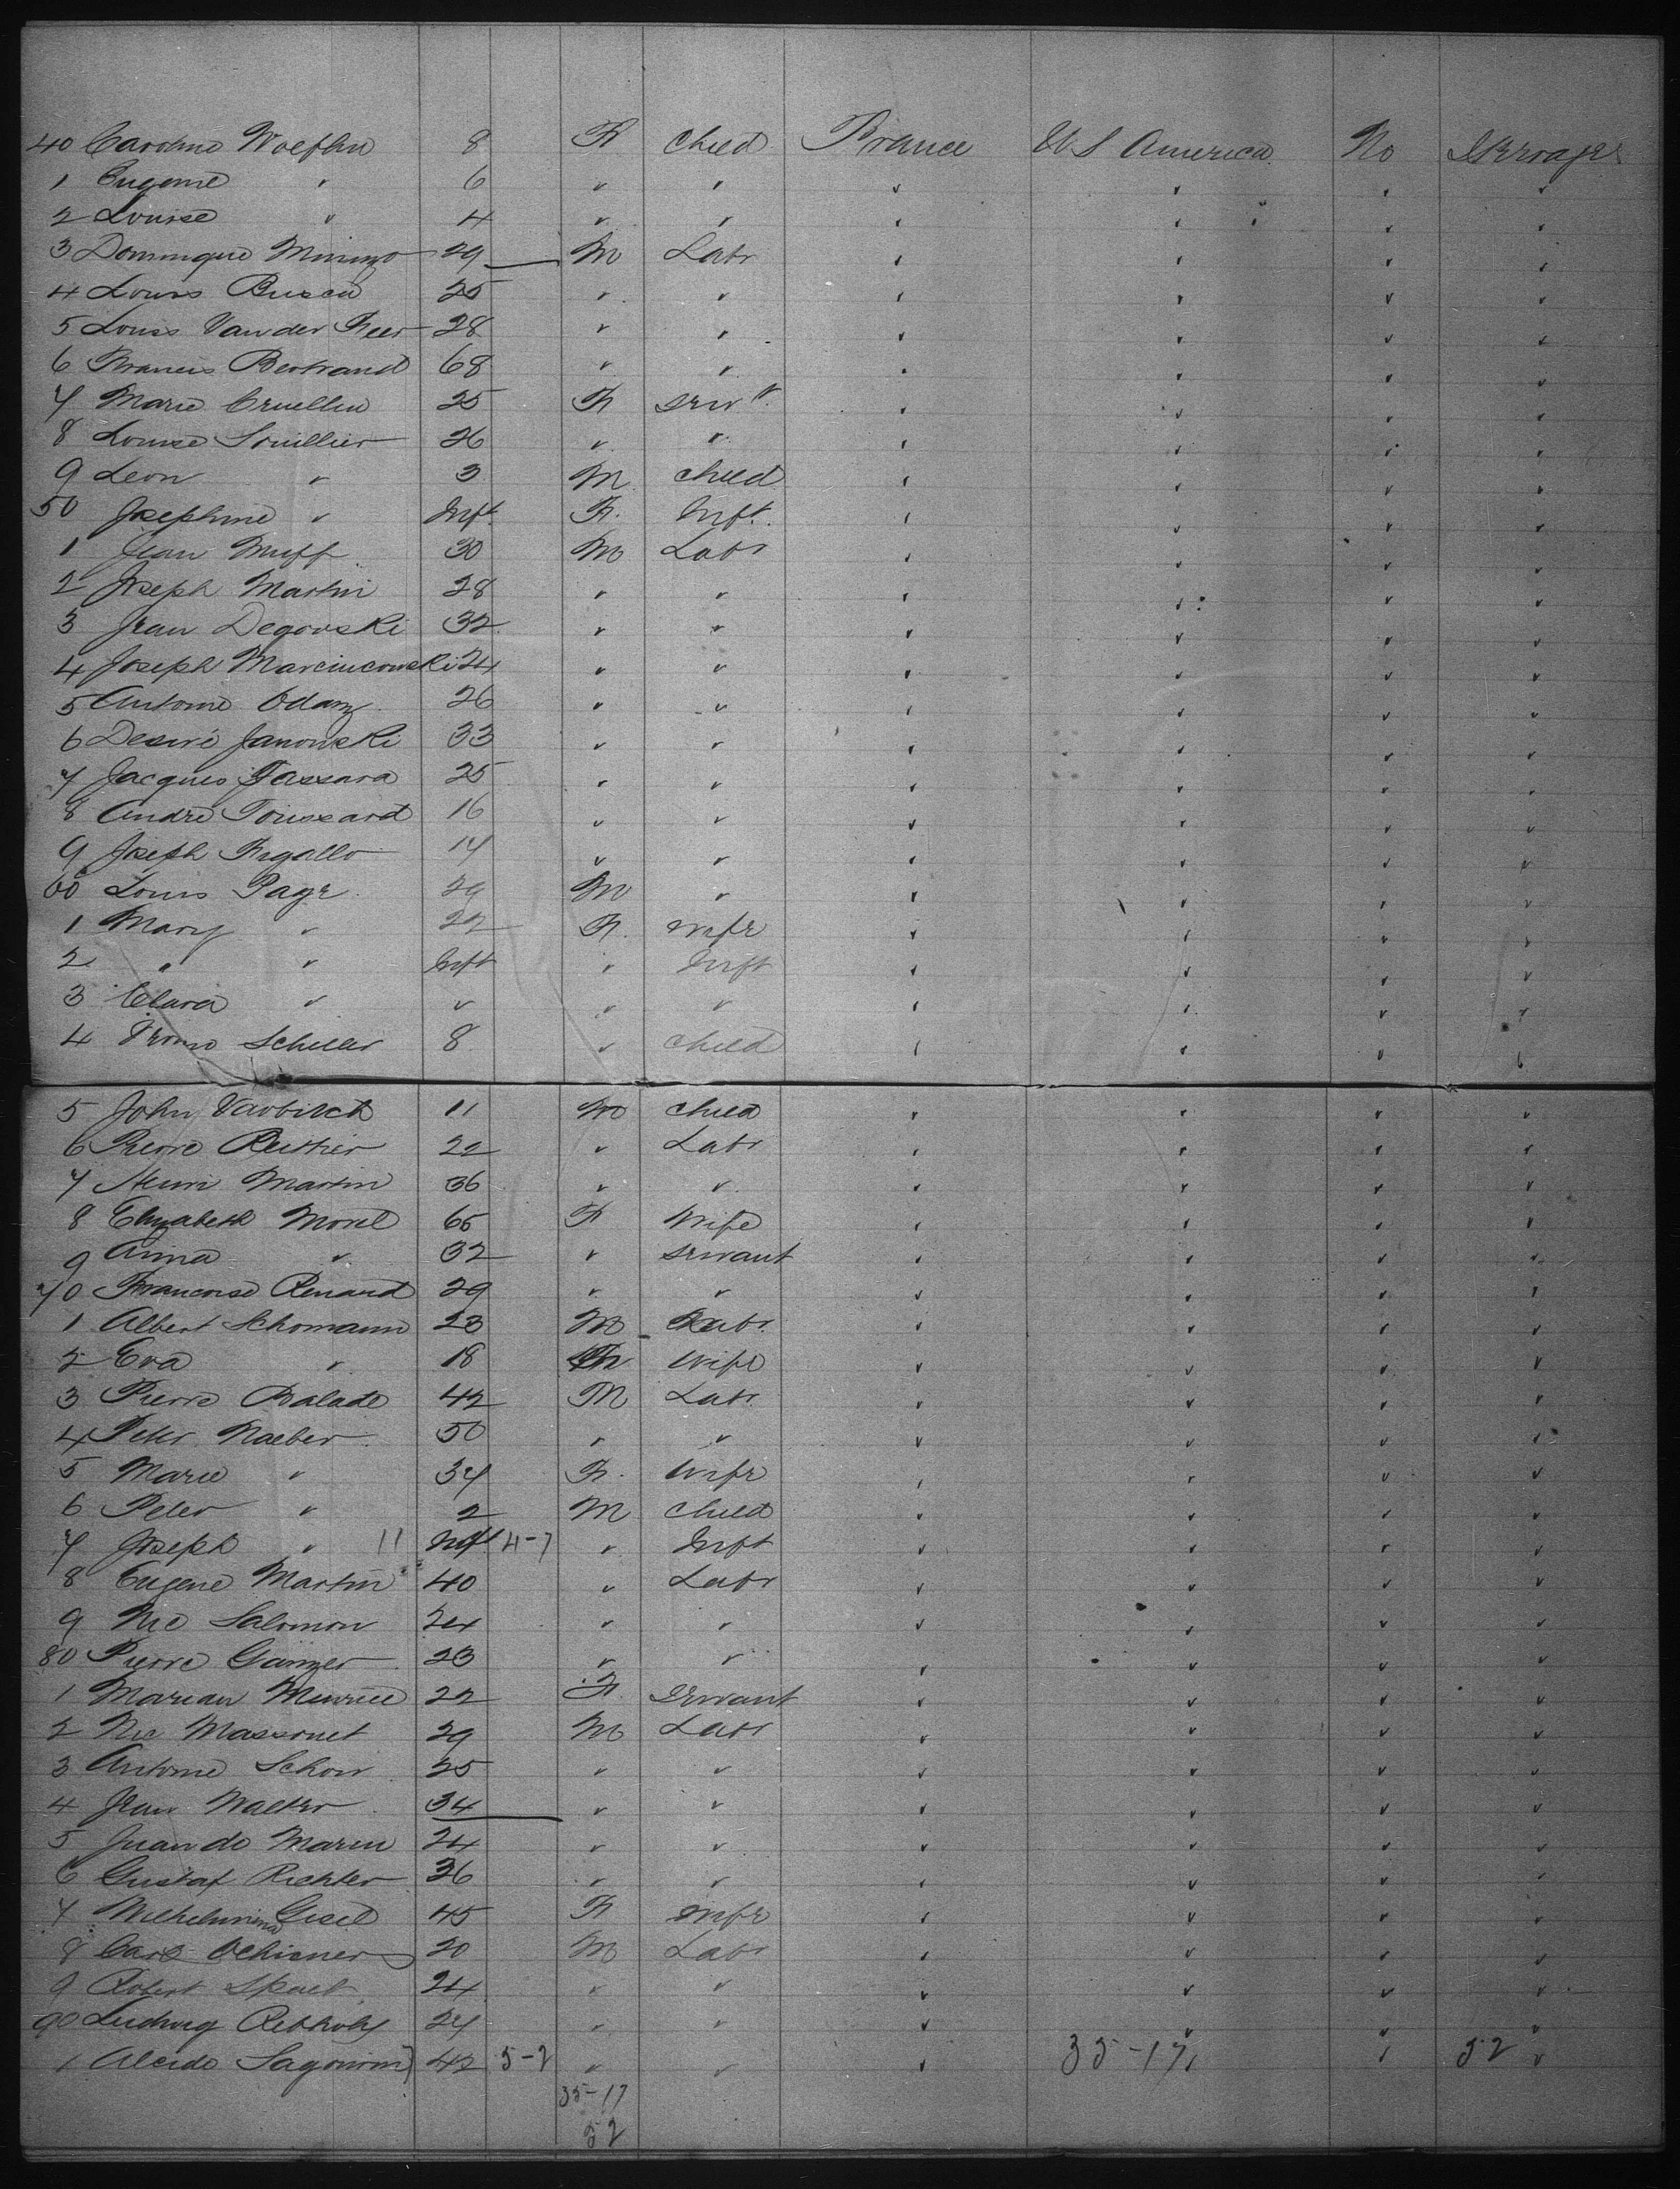 40 Caroline Woelflin 8 F Child France U S America No Steerage
1 Eugenie " 6 " " " " " "
2 Louise " 4 " " " " " "
3 Dominique Mininzo 29 M Labr " " " "
4 Louis Busca 25 " " " " " "
5 Louis Van der Peer 28 " " " " " "
6 Francis Bertrand 68 " " " " " "
7 Marie Cruellin 25 F Servt " " " "
8 Louise Souillier 26 " " " " " "
9 Leon " 3 M Child " " " "
50 Josephine " Inft F. Inft. " " " "
1 Jean Muff 30 M Labr " " " "
2 Joseph Martin 28 " " " " " "
3 Jean Degorski 32 " " " " " "
4 Joseph Marcincowski 24 " " " " " "
5 Antoine Odanz 26 " " " " " "
6 Desiré Janowski 33 " " " " " "
7 Jacques Fassara 25 " " " " " "
8 Andre Toussard 16 " " " " " "
9 Joseph Frgallo 17 " " " " " "
60 Louis Page 29 M " " " " "
1 Mary " 22 F. Wife " " " "
2 " " Inft " Inft " " " "
3 Clara " " " " " " " "
4 Schiller 8 " Child " " " "
5 John 11 M Child " " " "
6 Pierre Reuther 22 " Labr " " " "
7 Henri Martin 36 " " " " " "
8 Elizabeth Morel 65 F Wife " " " "
9 Anna " 32 " Servant " " " "
70 Francoise Renard 29 " " " " " "
1 Albert Schomann 23 M Labr. " " " "
2 Eva " 18 F Wife " " " "
3 Pierre Balade 42 M Labr " " " "
4 Peter Naeber 50 " " " " " "
5 Marie " 37 F. Wife " " " "
6 Peter " 2 M Child " " " "
7 Joseph " 11 Inft 4-7 " Inft " " " "
8 Eugene Martin 40 " Labr " " " "
9 Nic Salomon 24 " " " " " "
80 Pierre Ganzer 23 " " " " " "
1 Marian Meurice 22 F. Servant " " " "
2 Nic Massonet 29 M Labr " " " "
3 Antoine Schorr 25 " " " " " "
4 Jean Walter 34 " " " " " "
5 Juan de Marin 24 " " " " " "
6 Gustaf Richter 36 " " " " " "
7 Wilhelmina Gisel 45 F Wife " " " "
8 Carl Ochisner 20 M Labr " " " "
9 Robert Spaet 24 " " " " " "
90 Ludwig Rebholz 27 " " " " " "
1 Alcide Sagonini 42 5-2 " " " 35-17 " " 52 "
35-17
52